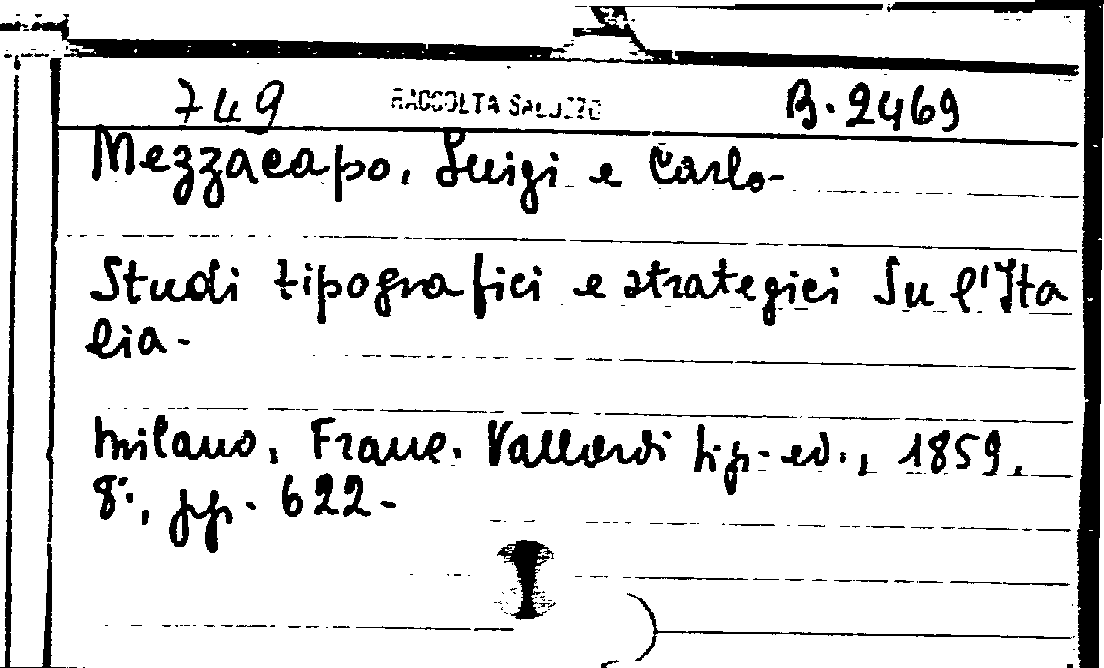 749 RACCOLTA SALUZZO B. 2469
Mezzacapo, Luigi e Carlo-
Studi tipografici e strategici Su l'Ita
lia-
Milano, Franc. Vallardi tip.-ed., 1859,
8°, pp. 622-